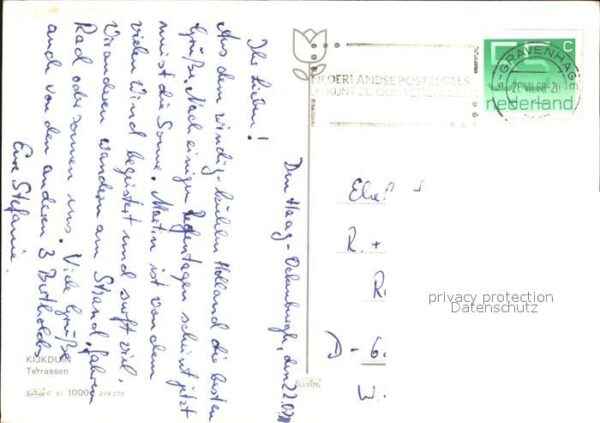 Den Haag-Ockenburgh, den 22.07.88
Ihr Lieben!
Aus dem windig-kühlen Holland die besten
Grüße. Nach einigen Regentagen scheint jetzt
meist die Sonne. Martin ist von dem
vielen Wind begeistert und surft viel.
Wir anderen wandern am Strand, fahren
Rad oder sonnen uns. Viele Grüße
auch von den anderen 3 Bertholds
Eure Stefanie.
KIJKDUIN
Terrassen
51 1000 274276
NEDERLANDSE POSTZEGELS
JE KUNT ZE OOK
'S-GRAVENHAGE
VII.88-20
75 C
nederland
R. +
R.
D-6
W.
privacy protection
Datenschutz